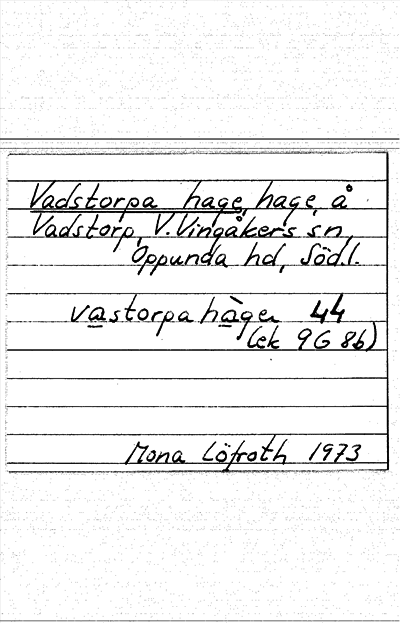 Vadstorpa hage, hage, å
Vadstorp, V. Vingåkers sn,
Oppunda hd, Södl.
vastorpa hàgen 44
(ek 9G 8b)
Mona Löfroth 1973